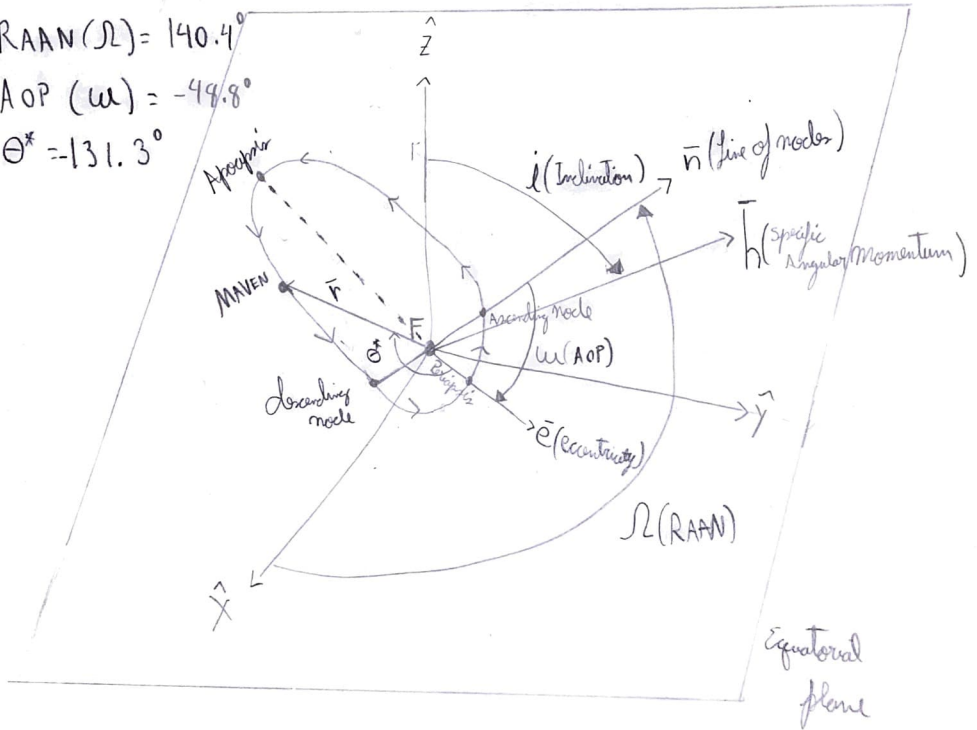 RAAN (Ω) = 140.4°
AOP (ω) = -48.8°
θ* = -131.3°
Ẑ
Apoapsis
i (Inclination)
n̄ (Line of nodes)
h̄ (Specific Angular Momentum)
MAVEN
r̄
F
Ascending Node
θ*
ω (AOP)
Periapsis
descending node
Ŷ
ē (eccentricity)
Ω (RAAN)
X̂
Equatorial
plane